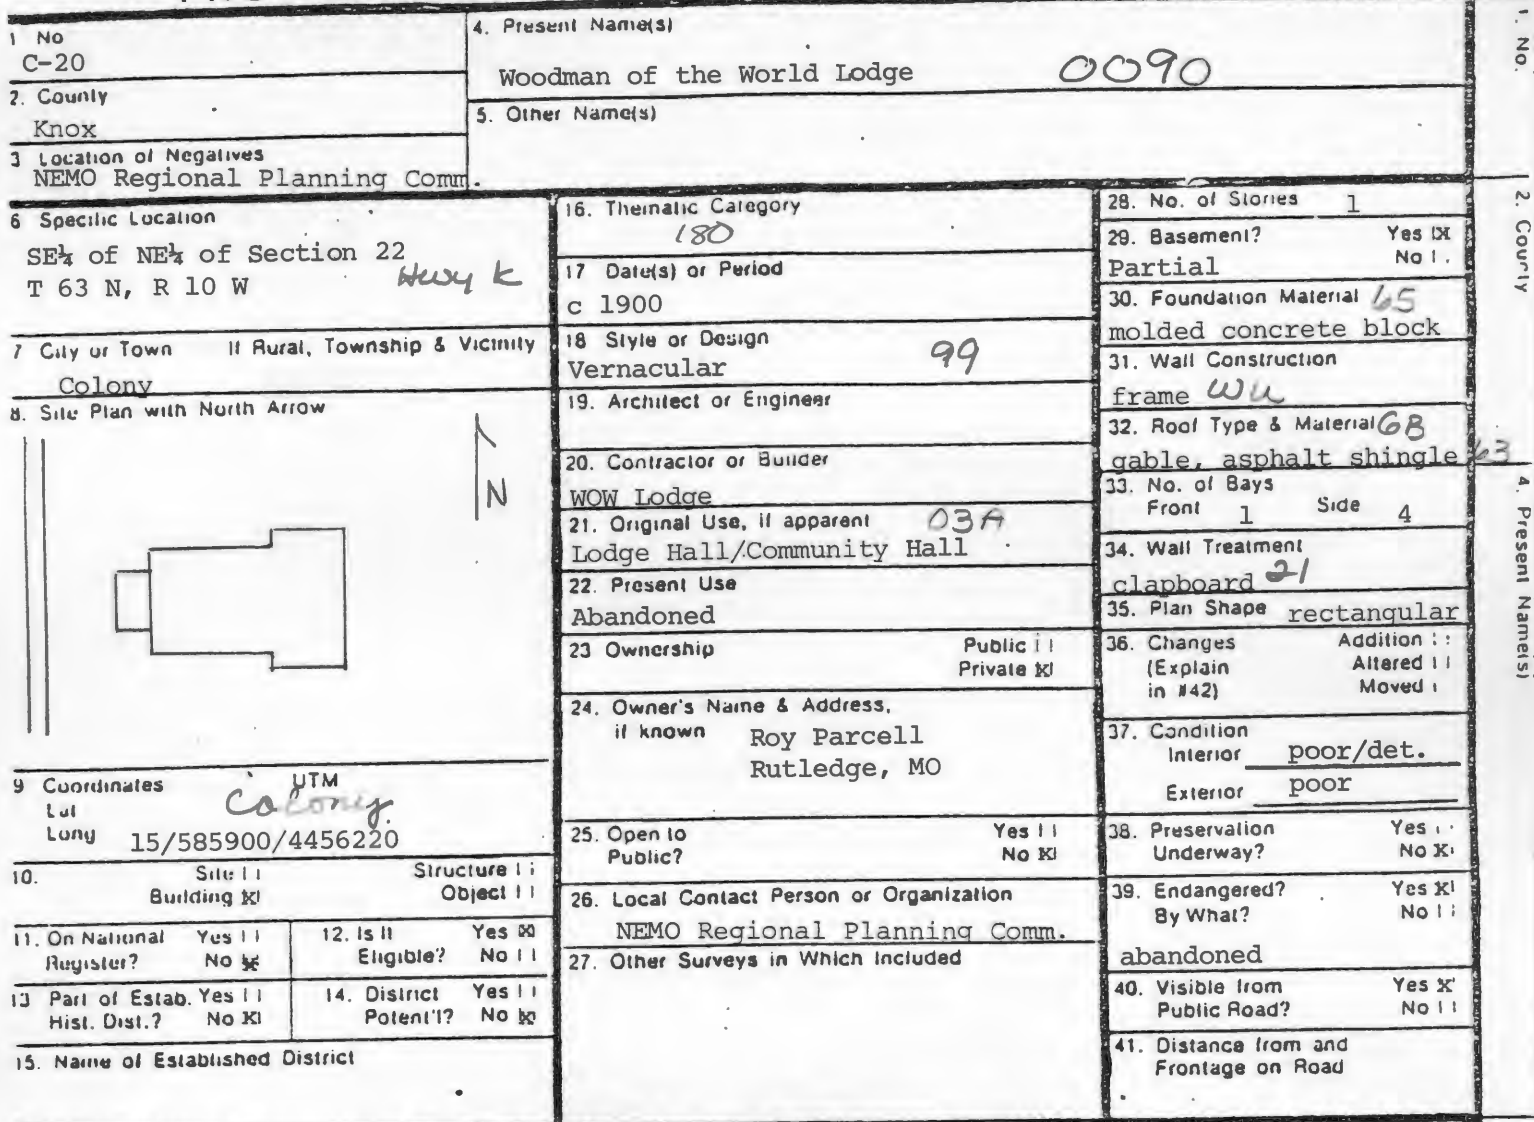 1 No
C-20
2. County
Knox
3 Location of Negatives
NEMO Regional Planning Comm.
4. Present Name(s)
Woodman of the World Lodge 0090
5. Other Name(s)
6 Specific Location
SE¼ of NE¼ of Section 22
T 63 N, R 10 W Hwy K
7 City or Town If Rural, Township & Vicinity
Colony
8. Site Plan with North Arrow
N
9 Coordinates UTM
Lat Colony
Long 15/585900/4456220
10. Site Structure
Building X Object
11. On National Yes
Register? No X
12. Is It Yes X
Eligible? No
13 Part of Estab. Yes
Hist. Dist.? No X
14. District Yes
Potent'l? No X
15. Name of Established District
16. Thematic Category
180
17 Date(s) or Period
c 1900
18 Style or Design 99
Vernacular
19. Architect or Engineer
20. Contractor or Builder
WOW Lodge
21. Original Use, if apparent 03A
Lodge Hall/Community Hall
22. Present Use
Abandoned
23 Ownership Public
Private X
24. Owner's Name & Address,
if known Roy Parcell
Rutledge, MO
25. Open to Yes
Public? No X
26. Local Contact Person or Organization
NEMO Regional Planning Comm.
27. Other Surveys in Which Included
28. No. of Stories 1
29. Basement? Yes X
Partial No
30. Foundation Material 65
molded concrete block
31. Wall Construction
frame WU
32. Roof Type & Material GB
gable, asphalt shingle 63
33. No. of Bays
Front 1 Side 4
34. Wall Treatment
clapboard 21
35. Plan Shape rectangular
36. Changes Addition
(Explain Altered
in #42) Moved
37. Condition
Interior poor/det.
Exterior poor
38. Preservation Yes
Underway? No X
39. Endangered? Yes X
By What? No
abandoned
40. Visible from Yes X
Public Road? No
41. Distance from and
Frontage on Road
1. No.
2. County
4. Present Name(s)